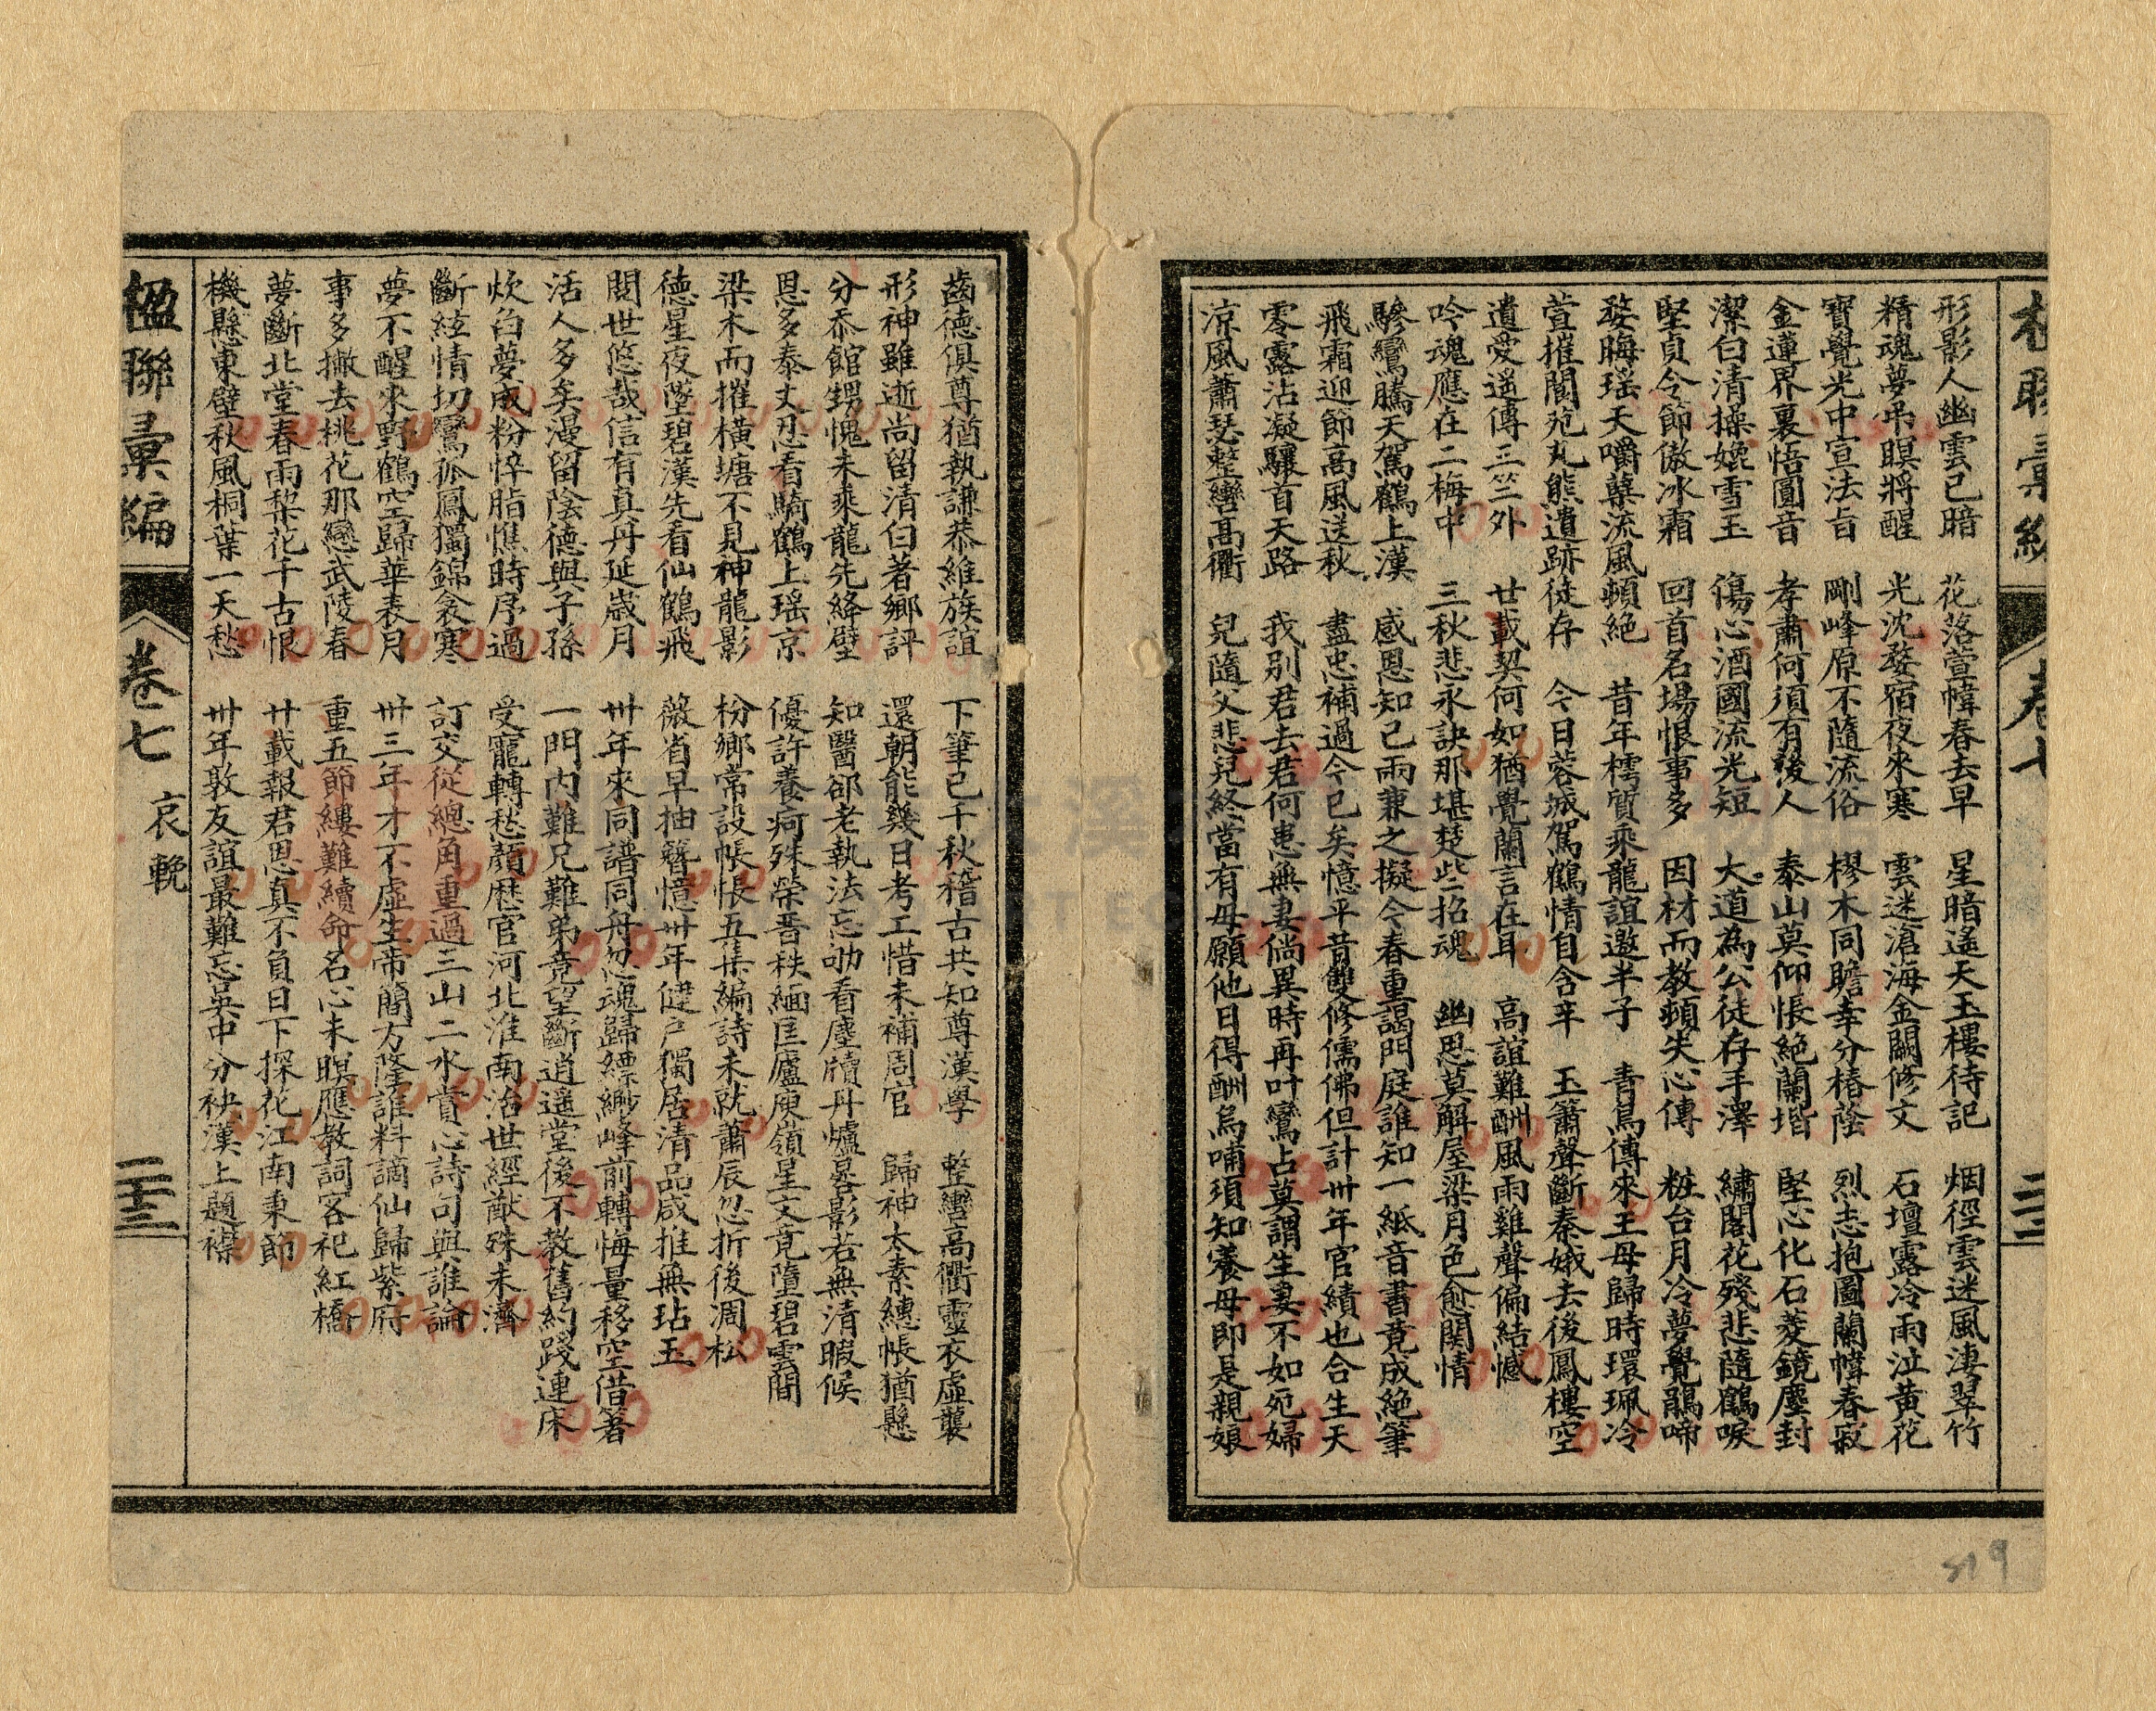 楹聯彙編
卷七
形影人幽雲已暗　花落萱幃春去早　星暗遙天玉樓待記　烟徑雲迷風淒翠竹
精魂夢弔瞑將醒　光沈婺宿夜來寒　雲迷滄海金闕修文　石壇露冷雨泣黃花
寶覺光中宣法旨　剛峰原不隨流俗　樛木同瞻幸分椿蔭　烈志抱圖蘭幃春寂
金蓮界裏悟圓音　孝肅何須有後人　泰山莫仰悵絕蘭堦　堅心化石菱鏡塵封
潔白清操娩雪玉　傷心酒國流光短　大道為公徒存手澤　繡閣花殘悲隨鶴唳
堅貞令節傲冰霜　回首名場恨事多　因材而教頓失心傳　粧台月冷夢覺鵑啼
婺晦瑤天嚼蘗流風頓絕　昔年樗質乘龍誼邀半子　青鳥傳來王母歸時環珮冷
萱摧閬苑丸熊遺跡徒存　今日蓉城駕鶴情自含辛　玉簫聲斷秦娥去後鳳樓空
遺愛遙傳三竺外　廿載契何如猶覺蘭言在耳　高誼難酬風雨雞聲偏結憾
吟魂應在二梅中　三秋悲永訣那堪楚些招魂　幽思莫解屋梁月色愈関情
驂鸞騰天駕鶴上漢　感恩知己兩兼之擬今春重謁門庭誰知一紙音書竟成絕筆
飛霜迎節高風送秋　盡忠補過今已矣憶平昔雙修儒佛但計卅年官績也合生天
零露沾凝驤首天路　我別君去君何患無妻倘異時再叶鸞占莫謂生妻不如死婦
涼風蕭瑟整轡高衢　兒隨父悲兒終當有母願他日得酬烏哺須知養母即是親娘
齒德俱尊猶執謙恭維族誼　下筆已千秋稽古共知尊漢學　整轡高衢靈衣虛襲
形神雖逝尚留清白著鄉評　還朝能幾日考工惜未補周官　歸神太素繐帳猶懸
分忝館甥愧未乘龍先絳壁　知醫郤老執法忘劬看塵牘丹爐晷影若無清暇候
恩多泰丈忍看騎鶴上瑤京　優許養疴殊榮晋秩緬匡廬庾嶺星文竟墮碧雲間
梁木而摧橫塘不見神龍影　枌鄉常設帳悵五集編詩未就蕭辰忽折後凋松
德星夜墜碧漢先看仙鶴飛　薇省早抽簪憶卅年健戶獨居清品咸推無玷玉
閱世悠哉信有真丹延歲月　卅年來同譜同舟忽魂歸縹緲峰前轉悔量移空借箸
活人多矣漫留陰德與子孫　一門內難兄難弟竟望斷逍遙堂後不教舊約踐連床
炊臼夢成粉悴脂憔時序過　受寵轉愁顏歷官河北淮南治世經猷殊未濟
斷絃情切鸞孤鳳獨錦衾寒　訂交從總角重過三山二水賞心詩句與誰論
夢不醒來野鶴空歸華表月　卅三年才不虛生帝簡方隆誰料謫仙歸紫府
事多撇去桃花那戀武陵春　重五節縷難續命名心未瞑應教詞客祀紅橋
夢斷北堂春雨梨花千古恨　廿載報君恩真不負日下探花江南秉節
機懸東壁秋風桐葉一天愁　卅年敦友誼最難忘吳中分袂漢上題襟
楹聯彙編
卷七　哀輓
二十三